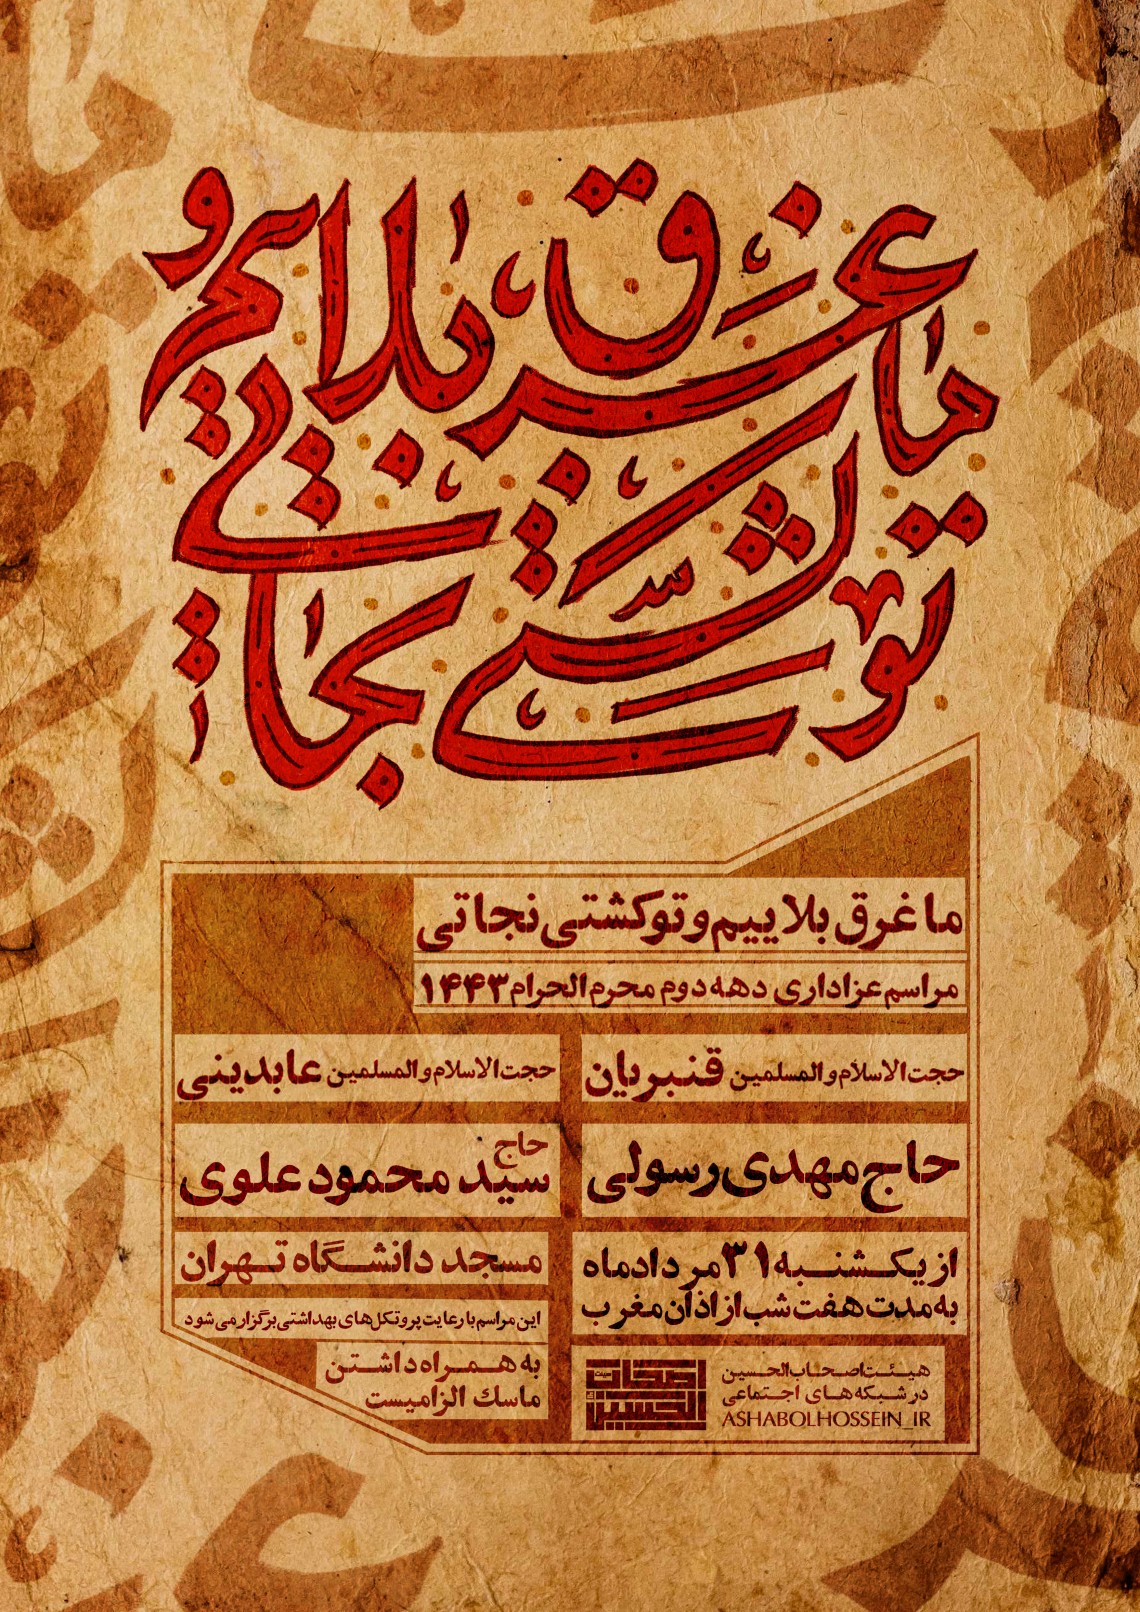 ما غرق بلاییم و
تو کشتی نجاتی
ما غرق بلاییم و تو کشتی نجاتی
مراسم عزاداری دهه دوم محرم الحرام ۱۴۴۳
حجت الاسلام والمسلمین قنبریان
حجت الاسلام والمسلمین عابدینی
حاج مهدی رسولی
حاج
سید محمود علوی
از یکشنبه ۳۱ مرداد ماه
به مدت هفت شب از اذان مغرب
مسجد دانشگاه تهران
این مراسم با رعایت پروتکل‌های بهداشتی برگزار می شود
به همراه داشتن
ماسک الزامیست
هیئت اصحاب الحسین
در شبکه های اجتماعی
ASHABOLHOSSEIN_IR
اصحاب
الحسین